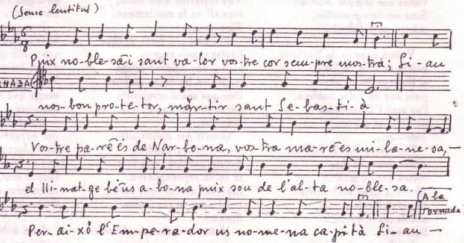 (Sense lentitud)
Puix no-ble-sa i sant va-lor vos-tre cor sem-pre mos-trà; Si-au
NADA
nos-bon pro-te-tor, màr-tir sant Se-bas-ti-à
Vos-tre pa-re és de Nar-bo-na, vos-tra ma-re és mi-la-ne-sa,—
el lli-nat-ge béus a-bo-na puix sou de l'al-ta no-ble-sa.
A la Tornada
Per-ai-xò l'Em-pe-ra-dor us no-me-na ca-pi-tà Si-au —